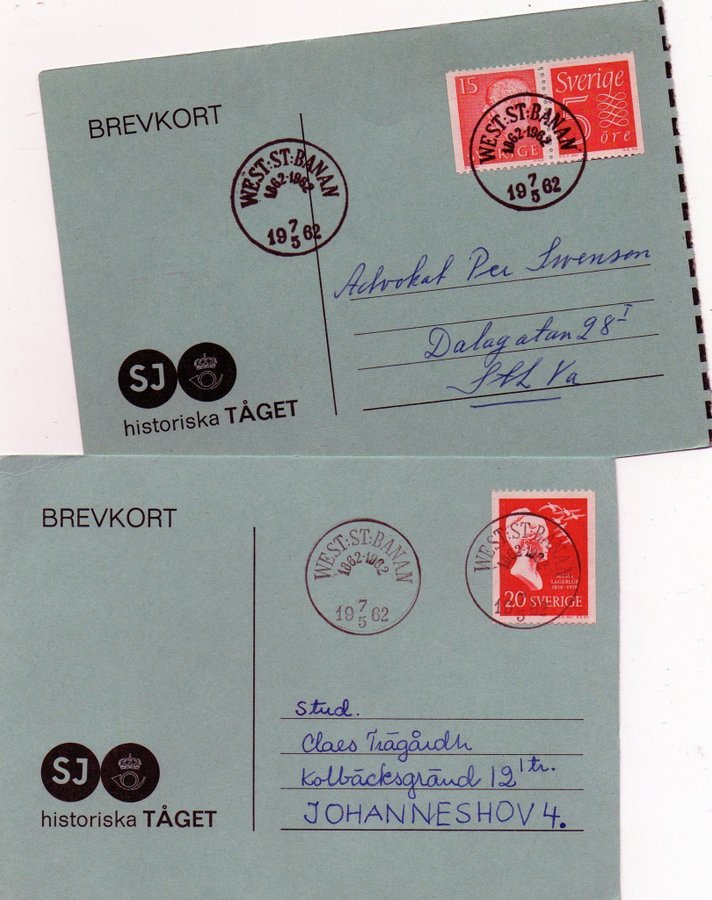 BREVKORT
15
Sverige
5
öre
WEST:ST:BANAN
1862-1962
19 7/5 62
WEST:ST:BANAN
1862-1962
19 7/5 62
Advokat Per Swenson
Dalagatan 28 I
Sthl Va
SJ
historiska TÅGET
BREVKORT
WEST:ST:BANAN
1862-1962
19 7/5 62
WEST:ST:BANAN
LAGERLÖF
20 SVERIGE
Stud.
Claes Trägårdh
Kolbäcksgränd 12 1 tr.
JOHANNESHOV 4.
SJ
historiska TÅGET